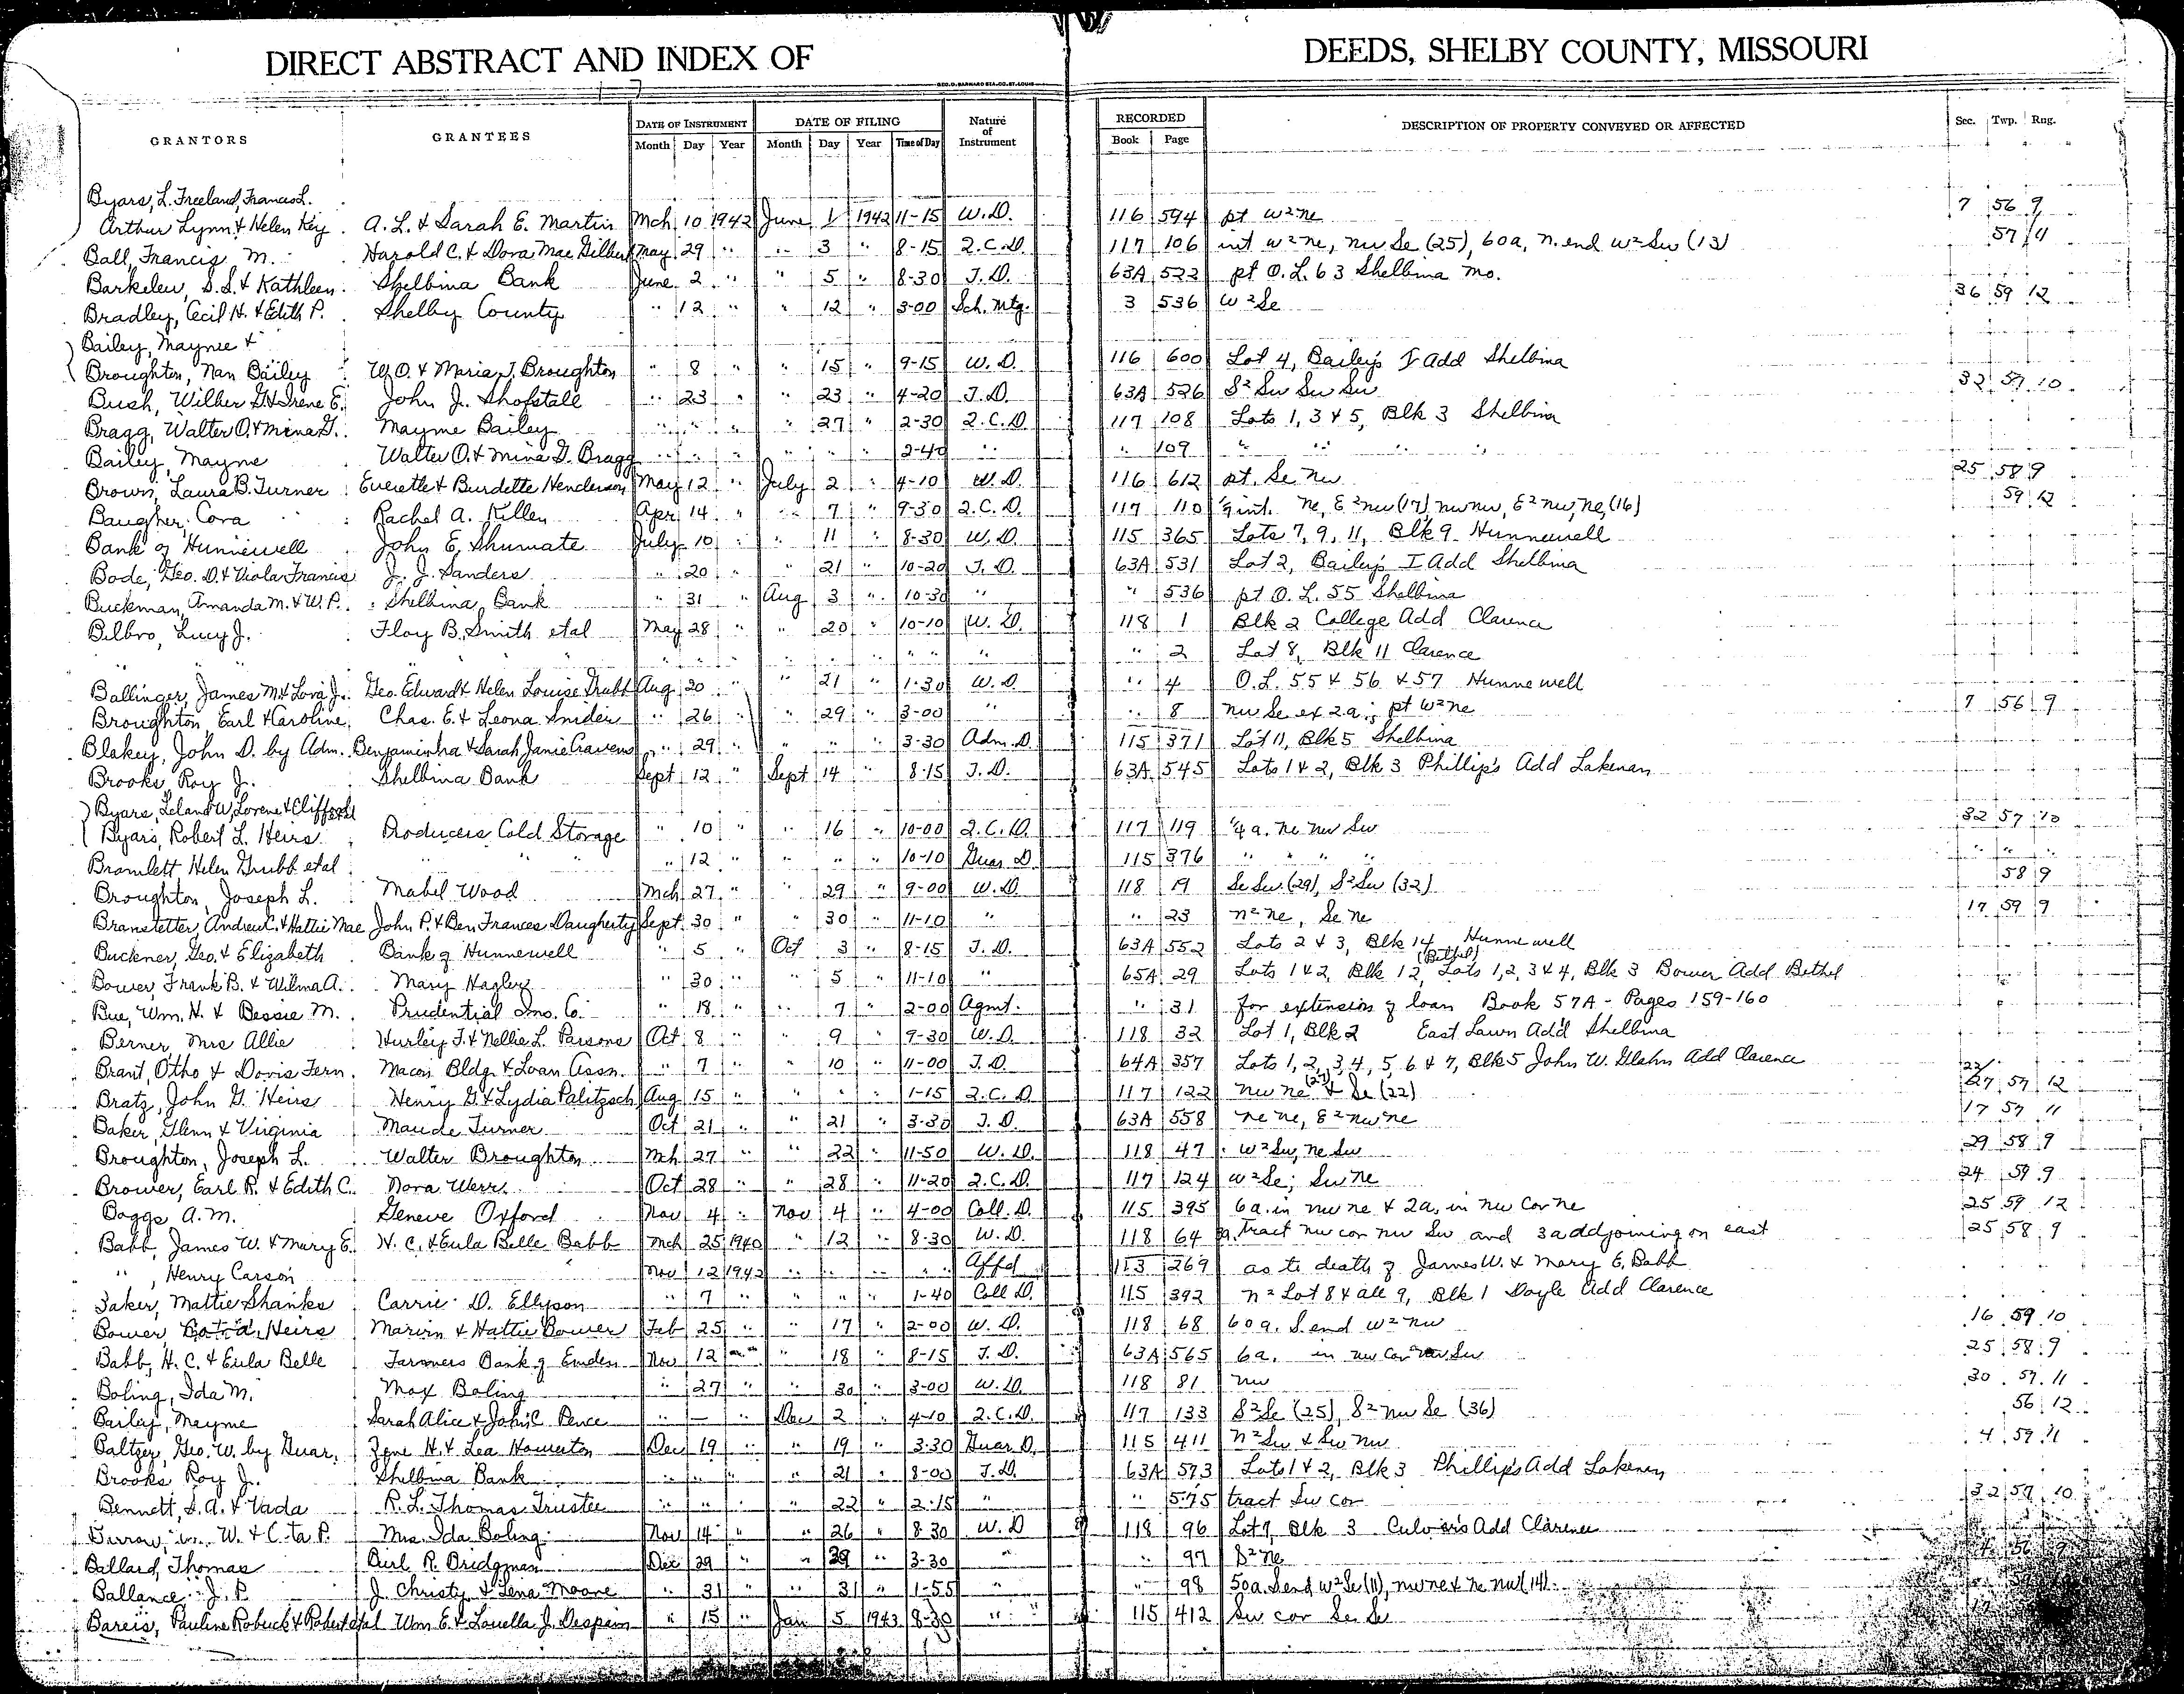 DIRECT ABSTRACT AND INDEX OF DEEDS, SHELBY COUNTY, MISSOURI
GEO. D. BARNARD STA. CO. ST. LOUIS
GRANTORS GRANTEES DATE OF INSTRUMENT DATE OF FILING Nature of Instrument RECORDED DESCRIPTION OF PROPERTY CONVEYED OR AFFECTED Sec. Twp. Rng.
Month Day Year Month Day Year Time of Day Book Page
Byars, L. Freeland, Francis L.
Arthur Lynn & Helen Key A. L. & Sarah E. Martin Mch 10 1942 June 1 1942 11-15 W.D. 116 594 pt W²ne 7 56 9
Ball, Francis M. Harold C. & Dora Mae Gilbert May 29 " " 3 " 8-15 Q.C.D. 117 106 int W²ne, nw Se (25), 60a, n. end W²Sw (13) 57 11
Barkelew, S.S. & Kathleen Shelbina Bank June 2 " " 5 " 8-30 T.D. 63A 522 pt O.L. 63 Shelbina Mo.
Bradley, Cecil H. & Edith P. Shelby County " 12 " " 12 " 3-00 Sch. Mtg. 3 536 W²Se 36 59 12
Bailey, Maynie &
Broughton, Nan Bailey W.O. & Maria J. Broughton " 8 " " 15 " 9-15 W.D. 116 600 Lot 4, Bailey's I Add Shelbina
Bush, Wilber G. & Irene E. John J. Shofstall " 23 " " 23 " 4-20 T.D. 63A 526 S² Sw Sw Sw 32 57 10
Bragg, Walter O. & Mina G. Mayme Bailey " " " " 27 " 2-30 Q.C.D. 117 108 Lots 1, 3 & 5, Blk 3 Shelbina
Bailey, Mayme Walter O. & Mina G. Bragg " " " " " " 2-40 " " 109 " " " "
Brown, Laura B. Turner Everette & Burdette Henderson May 12 " July 2 " 4-10 W.D. 116 612 pt. Se Nw 25 58 9
Baugher, Cora Rachel A. Killen Apr 14 " " 7 " 9-30 Q.C.D. 117 110 int. Ne, E²nw (17), nw nw, E²nw, ne (16) 59 12
Bank of Hunnewell John E. Shumate July 10 " " 11 " 8-30 W.D. 115 365 Lots 7, 9, 11, Blk 9 Hunnewell
Bode, Geo. D. & Viola Francis J. J. Sanders " 20 " " 21 " 10-20 T.D. 63A 531 Lot 2, Bailey's I Add Shelbina
Buckman, Amanda M. & W.P. Shelbina Bank " 31 " Aug 3 " 10-30 " " 536 pt O.L. 55 Shelbina
Bilbro, Lucy J. Floy B. Smith etal May 28 " " 20 " 10-10 W.D. 118 1 Blk 2 College Add Clarence
" " " " " " " " " " " 2 Lot 8, Blk 11 Clarence
Ballinger, James M. & Lora J. Geo. Edward & Helen Louise Grubb Aug 20 " " 21 " 1-30 W.D. " 4 O.L. 55 & 56 & 57 Hunnewell
Broughton, Earl & Caroline Chas. E. & Leona Snider " 26 " " 29 " 3-00 " " 8 nw Se ex 2a; pt W²ne 7 56 9
Blakey, John D. by Adm. Benjamin Ira & Sarah Janie Cravens " 29 " " " " 3-30 Adm. D. 115 371 Lot 11, Blk 5 Shelbina
Brooks, Roy J. Shelbina Bank Sept 12 " Sept 14 " 8-15 T.D. 63A 545 Lots 1 & 2, Blk 3 Phillip's Add Lakenan
Byars, Leland W, Lorene & Clifford
Byars, Robert L. Heirs Producers Cold Storage " 10 " " 16 " 10-00 Q.C.D. 117 119 ¼ a. ne nw Sw 32 57 10
Bramlett, Helen Grubb etal " " " 12 " " " " 10-10 Guar. D. 115 376 " " " " " " "
Broughton, Joseph L. Mabel Wood Mch 27 " " 29 " 9-00 W.D. 118 19 Se Sw (29), S²Sw (32) 58 9
Branstetter, Andrew C. & Hattie Mae John P. & Ben Frances Daugherty Sept 30 " " 30 " 11-10 " " 23 n²ne, Se ne 17 59 9
Buckner, Geo. & Elizabeth Bank of Hunnewell " 5 " Oct 3 " 8-15 T.D. 63A 552 Lots 2 & 3, Blk 14 Hunnewell
Bower, Frank B. & Wilma A. Mary Hagler " 30 " " 5 " 11-10 " 65A 29 Lots 1 & 2, Blk 12 (Bethel), Lots 1, 2, 3 & 4, Blk 3 Bower Add Bethel
Bue, Wm. H. & Bessie M. Prudential Ins. Co. " 18 " " 7 " 2-00 Agmt. " 31 for extension of loan Book 57A - Pages 159-160
Berner, Mrs Allie Hurley F. & Nellie L. Parsons Oct 8 " " 9 " 9-30 W.D. 118 32 Lot 1, Blk 2 East Lawn Add Shelbina
Brant, Otho & Dovis Fern Macon Bldg. & Loan Assn. " 7 " " 10 " 11-00 T.D. 64A 357 Lots 1, 2, 3, 4, 5, 6 & 7, Blk 5 John W. Glahn Add Clarence
Bratz, John G. Heirs Henry G. & Lydia Palitzsch Aug 15 " " " " 1-15 Q.C.D. 117 122 nw ne (27) & Se (22) 22 27 57 12
Baker, Glenn & Virginia Maude Turner Oct 21 " " 21 " 3-30 T.D. 63A 558 ne ne, E² nw ne 17 57 11
Broughton, Joseph L. Walter Broughton Mch 27 " " 22 " 11-50 W.D. 118 47 W²Sw, ne Sw 29 58 9
Brower, Earl R. & Edith C. Nora Werr Oct 28 " " 28 " 11-20 Q.C.D. 117 124 W²Se; Sw ne 24 59 9
Boggs, A. M. Geneve Oxford Nov 4 " Nov 4 " 4-00 Coll. D. 115 395 6a. in nw ne & 2a. in nw Cor ne 25 59 12
Babb, James W. & Mary E. H. C. & Eula Belle Babb Mch 25 1940 " 12 " 8-30 W.D. 118 64 tract nw cor nw Sw and 3a addjoining on east 25 58 9
" , Henry Carson Nov 12 1942 " " " " Affd 113 269 as to death of James W. & Mary E. Babb
Baker, Mattie Shanks Carrie D. Ellyson " 7 " " " " 1-40 Coll D. 115 392 n² Lot 8 & all 9, Blk 1 Doyle Add Clarence
Bower, Heirs Marvin & Hattie Bower Feb 25 " " 17 " 2-00 W.D. 118 68 60a. S end W² nw 16 59 10
Babb, H. C. & Eula Belle Farmers Bank of Emden Nov 12 " " 18 " 8-15 T.D. 63A 565 6a. in nw Cor nw Sw 25 58 9
Boling, Ida M. Max Boling " 27 " " 30 " 3-00 W.D. 118 81 nw 30 57 11
Bailey, Mayme Sarah Alice & John C. Pence " — " Dec 2 " 4-10 Q.C.D. 117 133 S²Se (25), S² nw Se (36) 56 12
Baltzer, Geo. W. by Guar. Zene H. & Lea Howerton Dec 19 " " 19 " 3-30 Guar D. 115 411 n²Sw & Sw nw 4 59 11
Brooks, Roy J. Shelbina Bank " " " " 21 " 8-00 T.D. 63A 573 Lots 1 & 2, Blk 3 Phillip's Add Lakenan
Bennett, S. A. & Vada R. L. Thomas Trustee " " " " 22 " 2-15 " " 575 tract Sw cor 32 57 10
W. & P. Mrs. Ida Boling Nov 14 " " 26 " 8 30 W.D 118 96 Lot 9, Blk 3 Culver's Add Clarence
Ballard, Thomas R. Bridgman Dec 29 " " 29 " 3-30 " " 97 S²ne 56 9
Ballance, J. P. J. Christy & Lena Moore " 31 " " 31 " 1-55 " " 98 50a. S end W²Se (11), nw ne & ne nw (14)
Bareis, Pauline Robuck & Robert etal Wm E. & Louella J. Despain " 15 " Jan 5 1943 8-30 " 115 412 Sw cor Se Sw